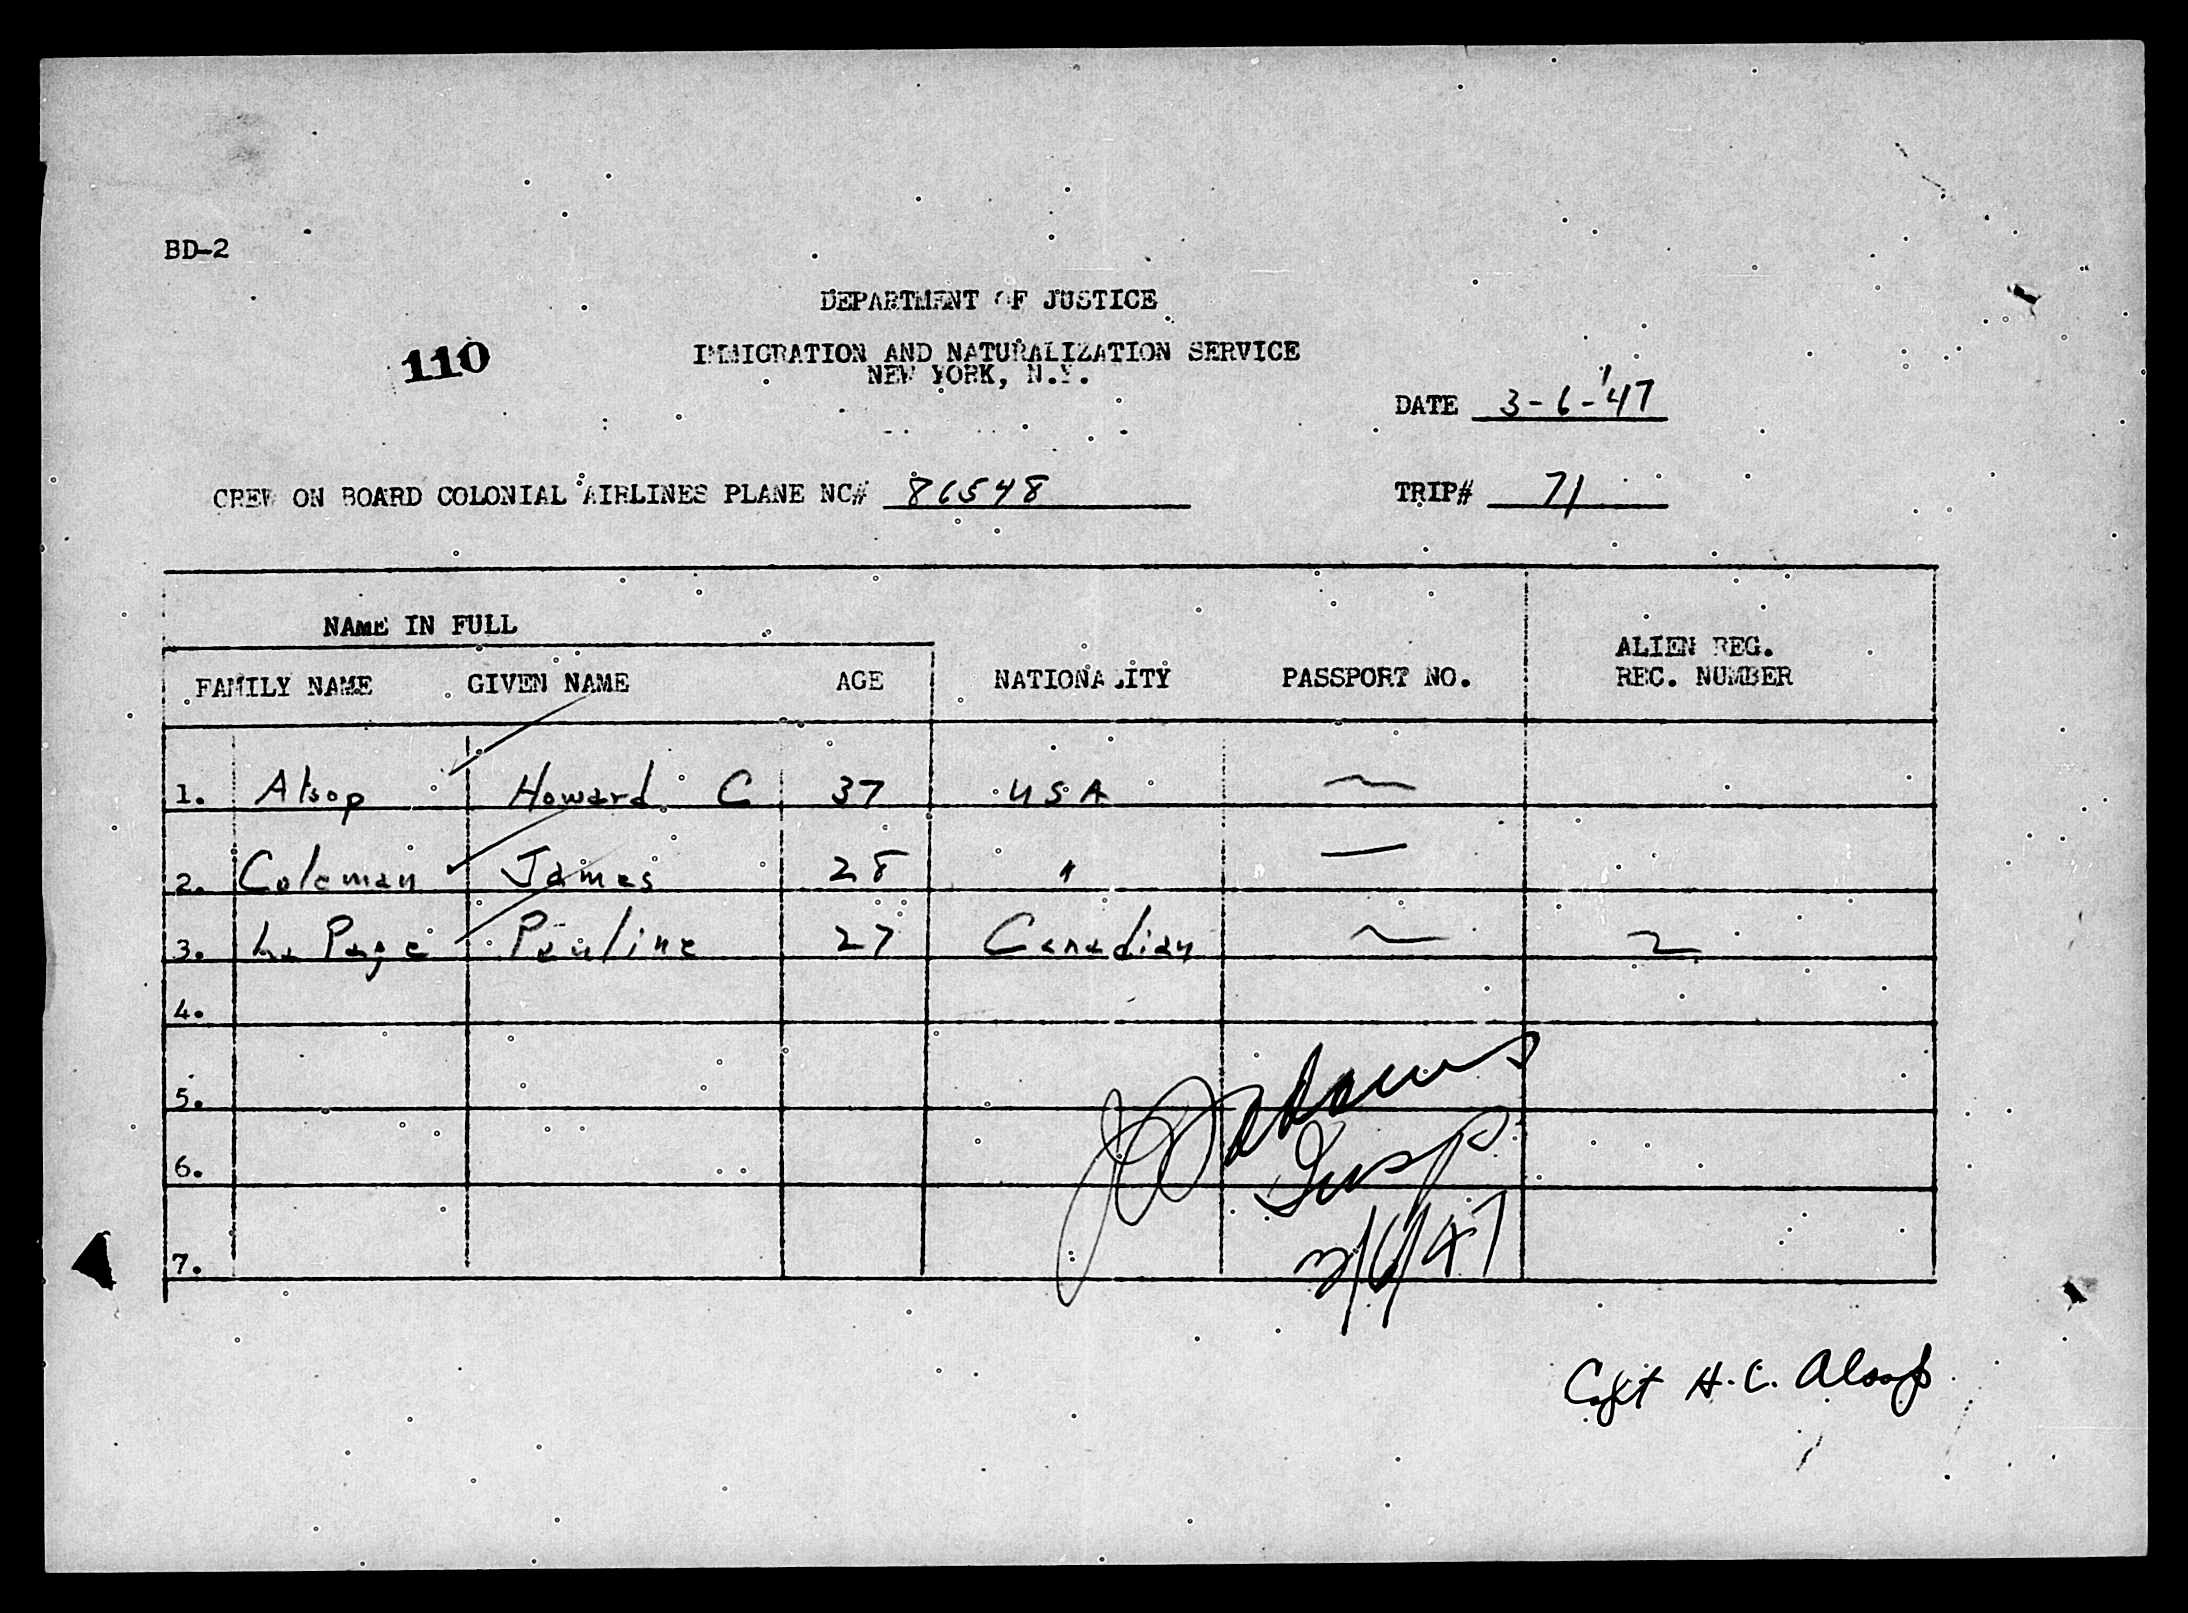 BD-2
DEPARTMENT OF JUSTICE
110
IMMIGRATION AND NATURALIZATION SERVICE
NEW YORK, N.Y.
DATE 3-6-'47
CREW ON BOARD COLONIAL AIRLINES PLANE NC# 86548
TRIP# 71
NAME IN FULL
FAMILY NAME GIVEN NAME AGE NATIONALITY PASSPORT NO. ALIEN REG. REC. NUMBER
1. Alsop Howard C 37 USA —
2. Coleman James 28 " —
3. La Page Pauline 27 Canadian — —
4.
5.
6.
7.
Adams
Insp
3/6/47
Capt H.C. Alsop